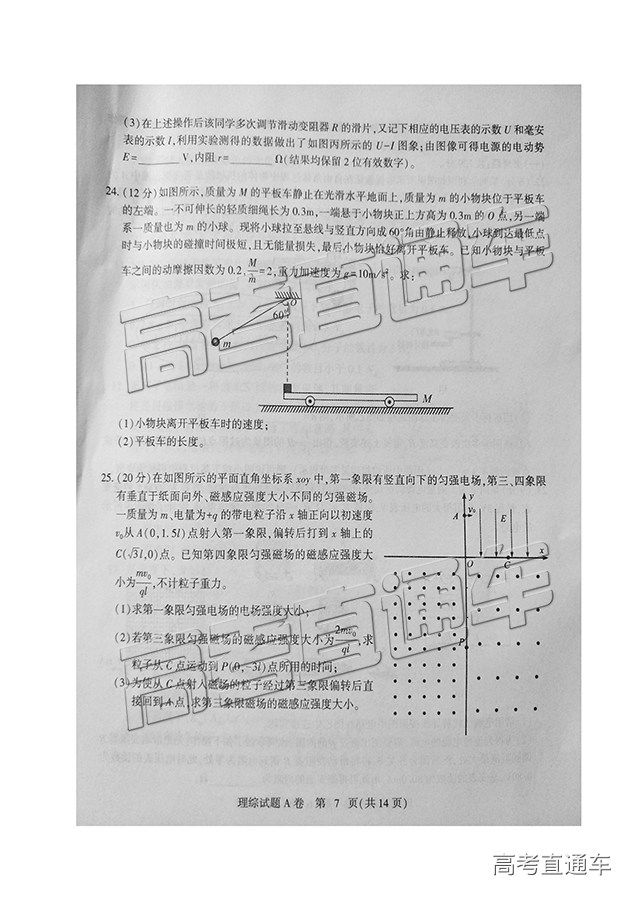 (3)在上述操作后该同学多次调节滑动变阻器R的滑片,又记下相应的电压表的示数U和毫安
表的示数I,利用实验测得的数据做出了如图丙所示的U-I图象;由图像可得电源的电动势
E=______V,内阻r=______Ω(结果均保留2位有效数字)。
24.(12分)如图所示,质量为M的平板车静止在光滑水平地面上,质量为m的小物块位于平板车
的左端。一不可伸长的轻质细绳长为0.3m,一端悬于小物块正上方高为0.3m的O点,另一端
系一质量也为m的小球。现将小球拉至悬线与竖直方向成60°角由静止释放,小球到达最低点
时与小物块的碰撞时间极短,且无能量损失,最后小物块恰好离开平板车。已知小物块与平板
车之间的动摩擦因数为0.2,M/m=2,重力加速度为g=10m/s²。求:
O
60°
m
M
(1)小物块离开平板车时的速度;
(2)平板车的长度。
25.(20分)在如图所示的平面直角坐标系xoy中,第一象限有竖直向下的匀强电场,第三、四象限
有垂直于纸面向外、磁感应强度大小不同的匀强磁场。
一质量为m、电量为+q的带电粒子沿x轴正向以初速度
v₀从A(0,1.5l)点射入第一象限,偏转后打到x轴上的
C(√3l,0)点。已知第四象限匀强磁场的磁感应强度大
小为mv₀/ql,不计粒子重力。
(1)求第一象限匀强电场的电场强度大小;
(2)若第三象限匀强磁场的磁感应强度大小为2mv₀/ql,求
粒子从C点运动到P(0,-3l)点所用的时间;
(3)为使从C点射入磁场的粒子经过第三象限偏转后直
接回到A点,求第三象限磁场的磁感应强度大小。
y
A
v₀
E
O
C
x
P
理综试题A卷 第 7 页(共14页)
高考直通车
高考直通车
高考直通车